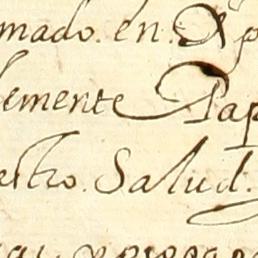 mado. en. Xp
lemente Pap
estro. Salud.